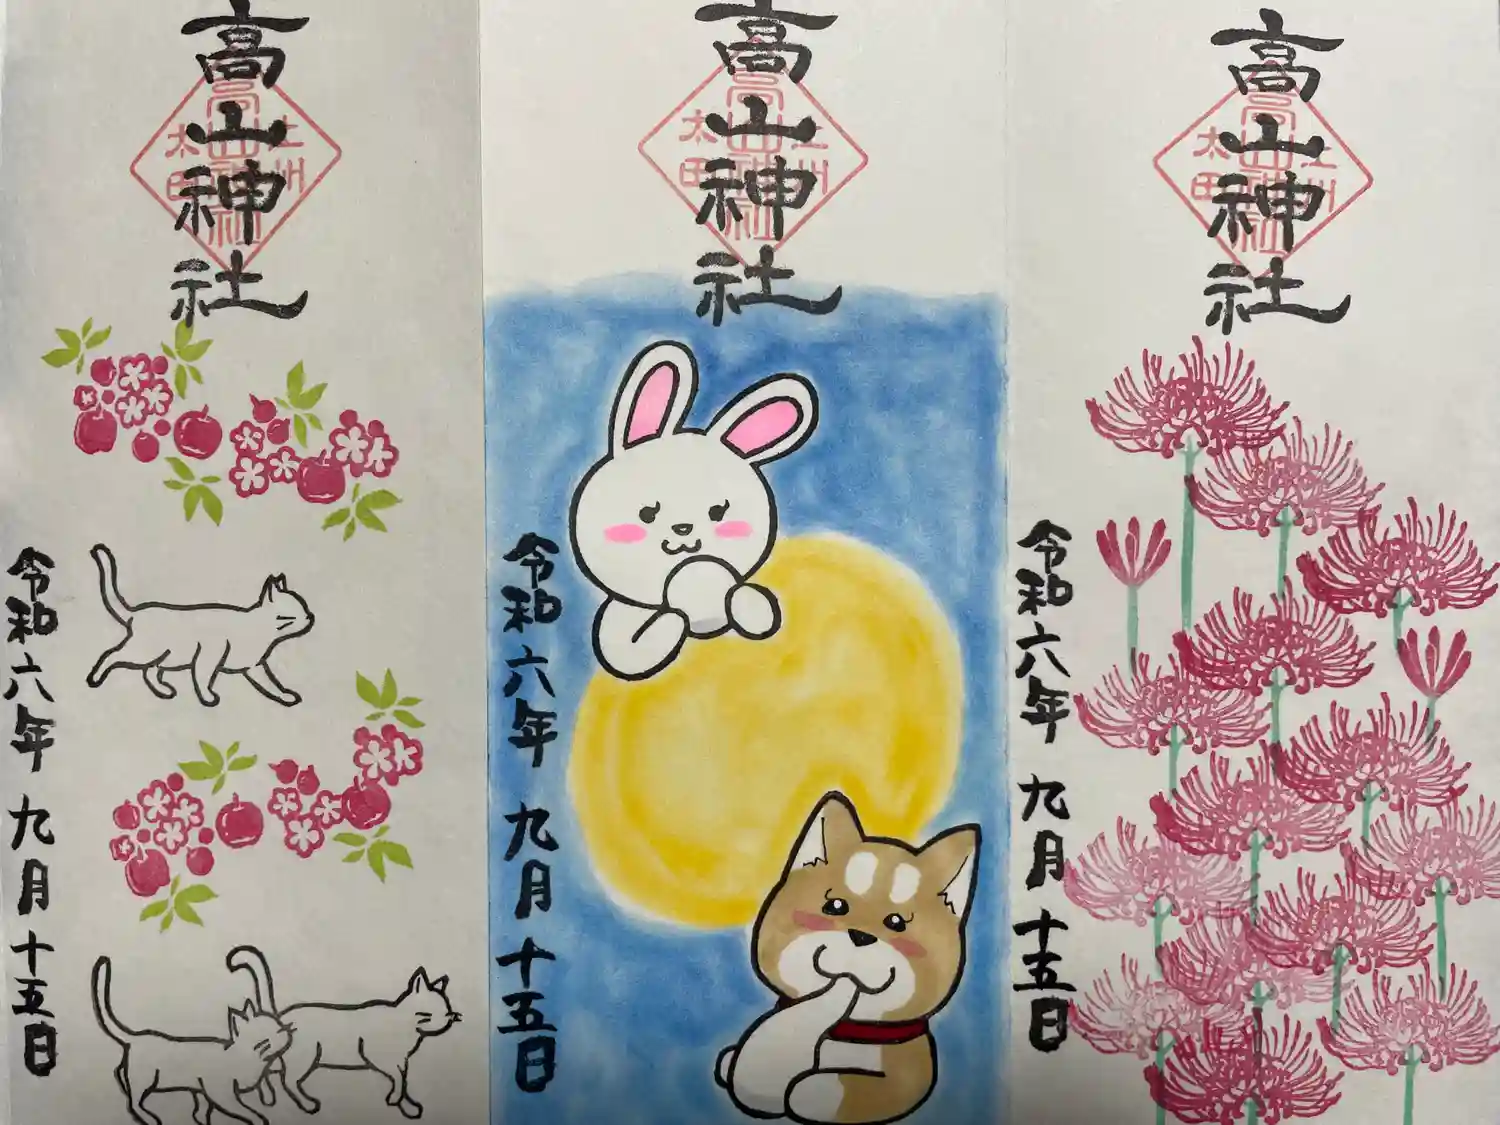 高山神社
上州
高山神社
太田
令和六年 九月 十五日
高山神社
上州
高山神社
太田
令和六年 九月 十五日
高山神社
上州
高山神社
太田
令和六年 九月 十五日